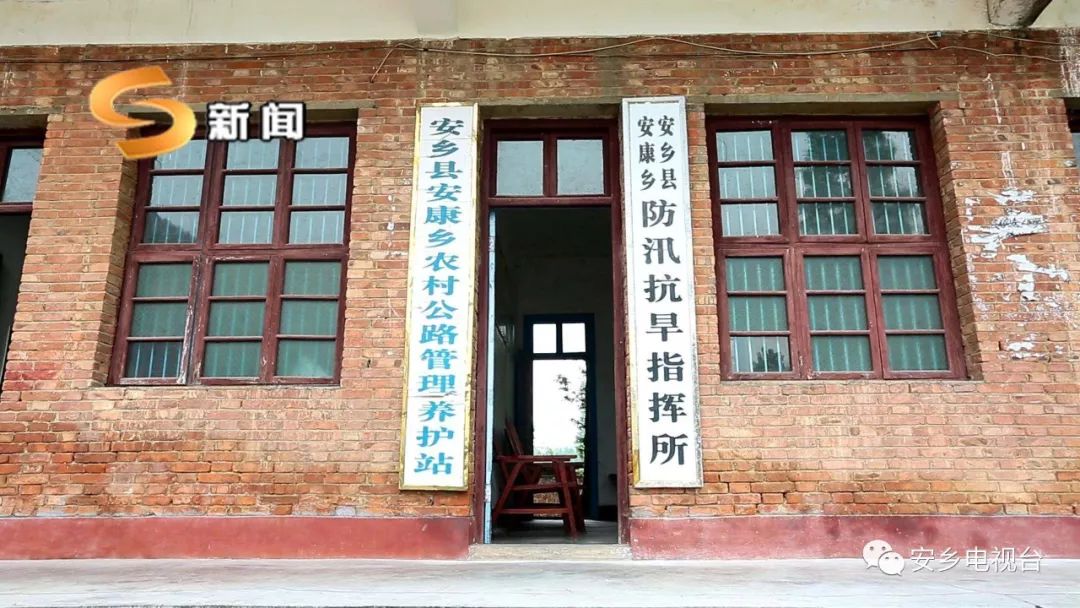 新闻
安乡县安康乡农村公路管理养护站
安乡县
安康乡
防汛抗旱指挥所
安乡电视台